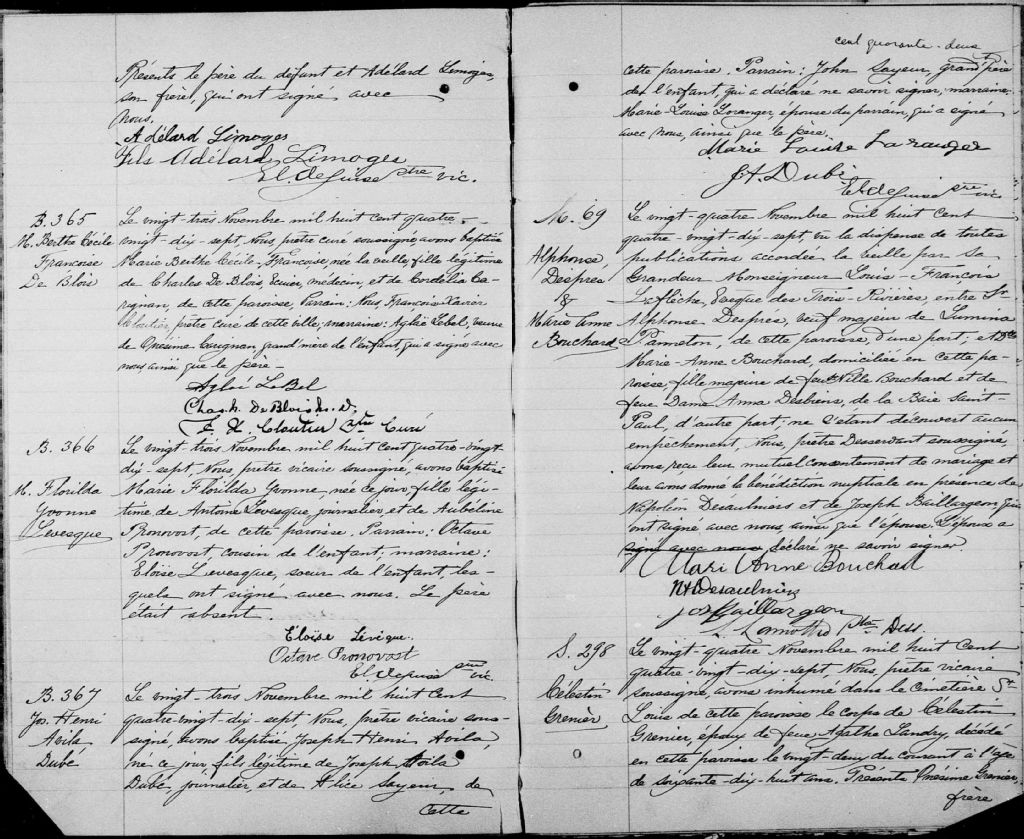 Présents le père du défunt et Adélard Limoges
son frère, qui ont signé avec
nous.
Adélard Limoges
Fils Adélard Limoges
ptre vic.
B. 365
M. Berthe Cécile
Françoise
De Blois
Le vingt-trois Novembre mil huit cent quatre-
vingt-dix-sept, Nous, prêtre curé soussigné, avons baptisé
Marie Berthe Cécile-Françoise, née la veille, fille légitime
de Charles De Blois, Ecuier, médecin, et de Cordélia Ca-
rignan, de cette paroisse, Parrain: Nous François-Xavier
Cloutier, prêtre curé de cette ville; marraine: Aglaé Lebel, veuve
de Onésime Carignan grand'mère de l'enfant, qui a signé avec
nous ainsi que le père -
Aglaé LeBel
Chas. h. De Blois M.D.
F. X. Cloutier Ptre Curé
B. 366
M. Florilda
Yvonne
Levesque
Le vingt-trois Novembre mil huit cent quatre-vingt-
dix-sept, Nous, prêtre vicaire soussigné, avons baptisé
Marie Florilda Yvonne, née ce jour, fille légi-
time de Antoine Levesque, journalier, et de Aubeline
Pronovost, de cette paroisse, Parrain: Octave
Pronovost, cousin de l'enfant; marraine:
Eloïse Levesque, soeur de l'enfant, les-
quels ont signé avec nous. Le père
était absent.
Éloïse Lévêque.
Octave Pronovost
ptre vic.
B. 367
Jos. Henri
Avila
Dubé
Le vingt-trois Novembre mil huit cent
quatre-vingt-dix-sept Nous, prêtre vicaire sous-
signé, avons baptisé Joseph Henri Avila,
né ce jour fils légitime de Joseph Avila
Dubé, journalier, et de Alice Sayeur, de
Cette
cent quarante-deux
cette paroisse, Parrain: John Sayeur, grand'père
de l'enfant, qui a déclaré ne savoir signer, marraine
Marie-Louise Loranger épouse du parrain, qui a signé
avec nous, ainsi que le père.
Marie Louise Loranger
Dubé
ptre vic
M. 69
Alphonse
Després
&
Marie-Anne
Bouchard
Le vingt-quatre Novembre mil huit cent
quatre-vingt-dix-sept, vu la dispense de toutes
publications accordée la veille par Sa
Grandeur Monseigneur Louis-François
Laflèche, Evêque des Trois-Rivières, entre Sr
Alphonse Després, veuf majeur de Lumina
Panneton, de cette paroisse, d'une part; et Dlle
Marie-Anne Bouchard, domiciliée en cette pa-
roisse, fille majeure de feu Ville Bouchard et de
feue Dame Anna Desbiens, de la Baie Saint-
Paul, d'autre part; ne s'étant découvert aucun
empêchement, Nous, prêtre Desservant soussigné,
avons reçu leur mutuel consentement de mariage et
leur avons donné la bénédiction nuptiale en présence de
Napoléon Désaulniers et de Joseph Baillargeon, qui
ont signé avec nous ainsi que l'épouse. L'époux a
signé avec nous déclaré ne savoir signer.
Mari Anne Bouchard
Desaulniers
Jos Baillargeon
Lamothe Ptre Dess.
S. 298
Célestin
Grenier
Le vingt-quatre Novembre mil huit Cent
quatre-vingt-dix-sept Nous, prêtre vicaire
soussigné, avons inhumé dans le Cimetière St
Louis de cette paroisse le corps de Célestin
Grenier, époux de feue Agathe Landry, décédé
en cette paroisse le vingt-deux du courant à l'age
de soixante-dix-huit ans. Présents Onésime Grenier,
frère